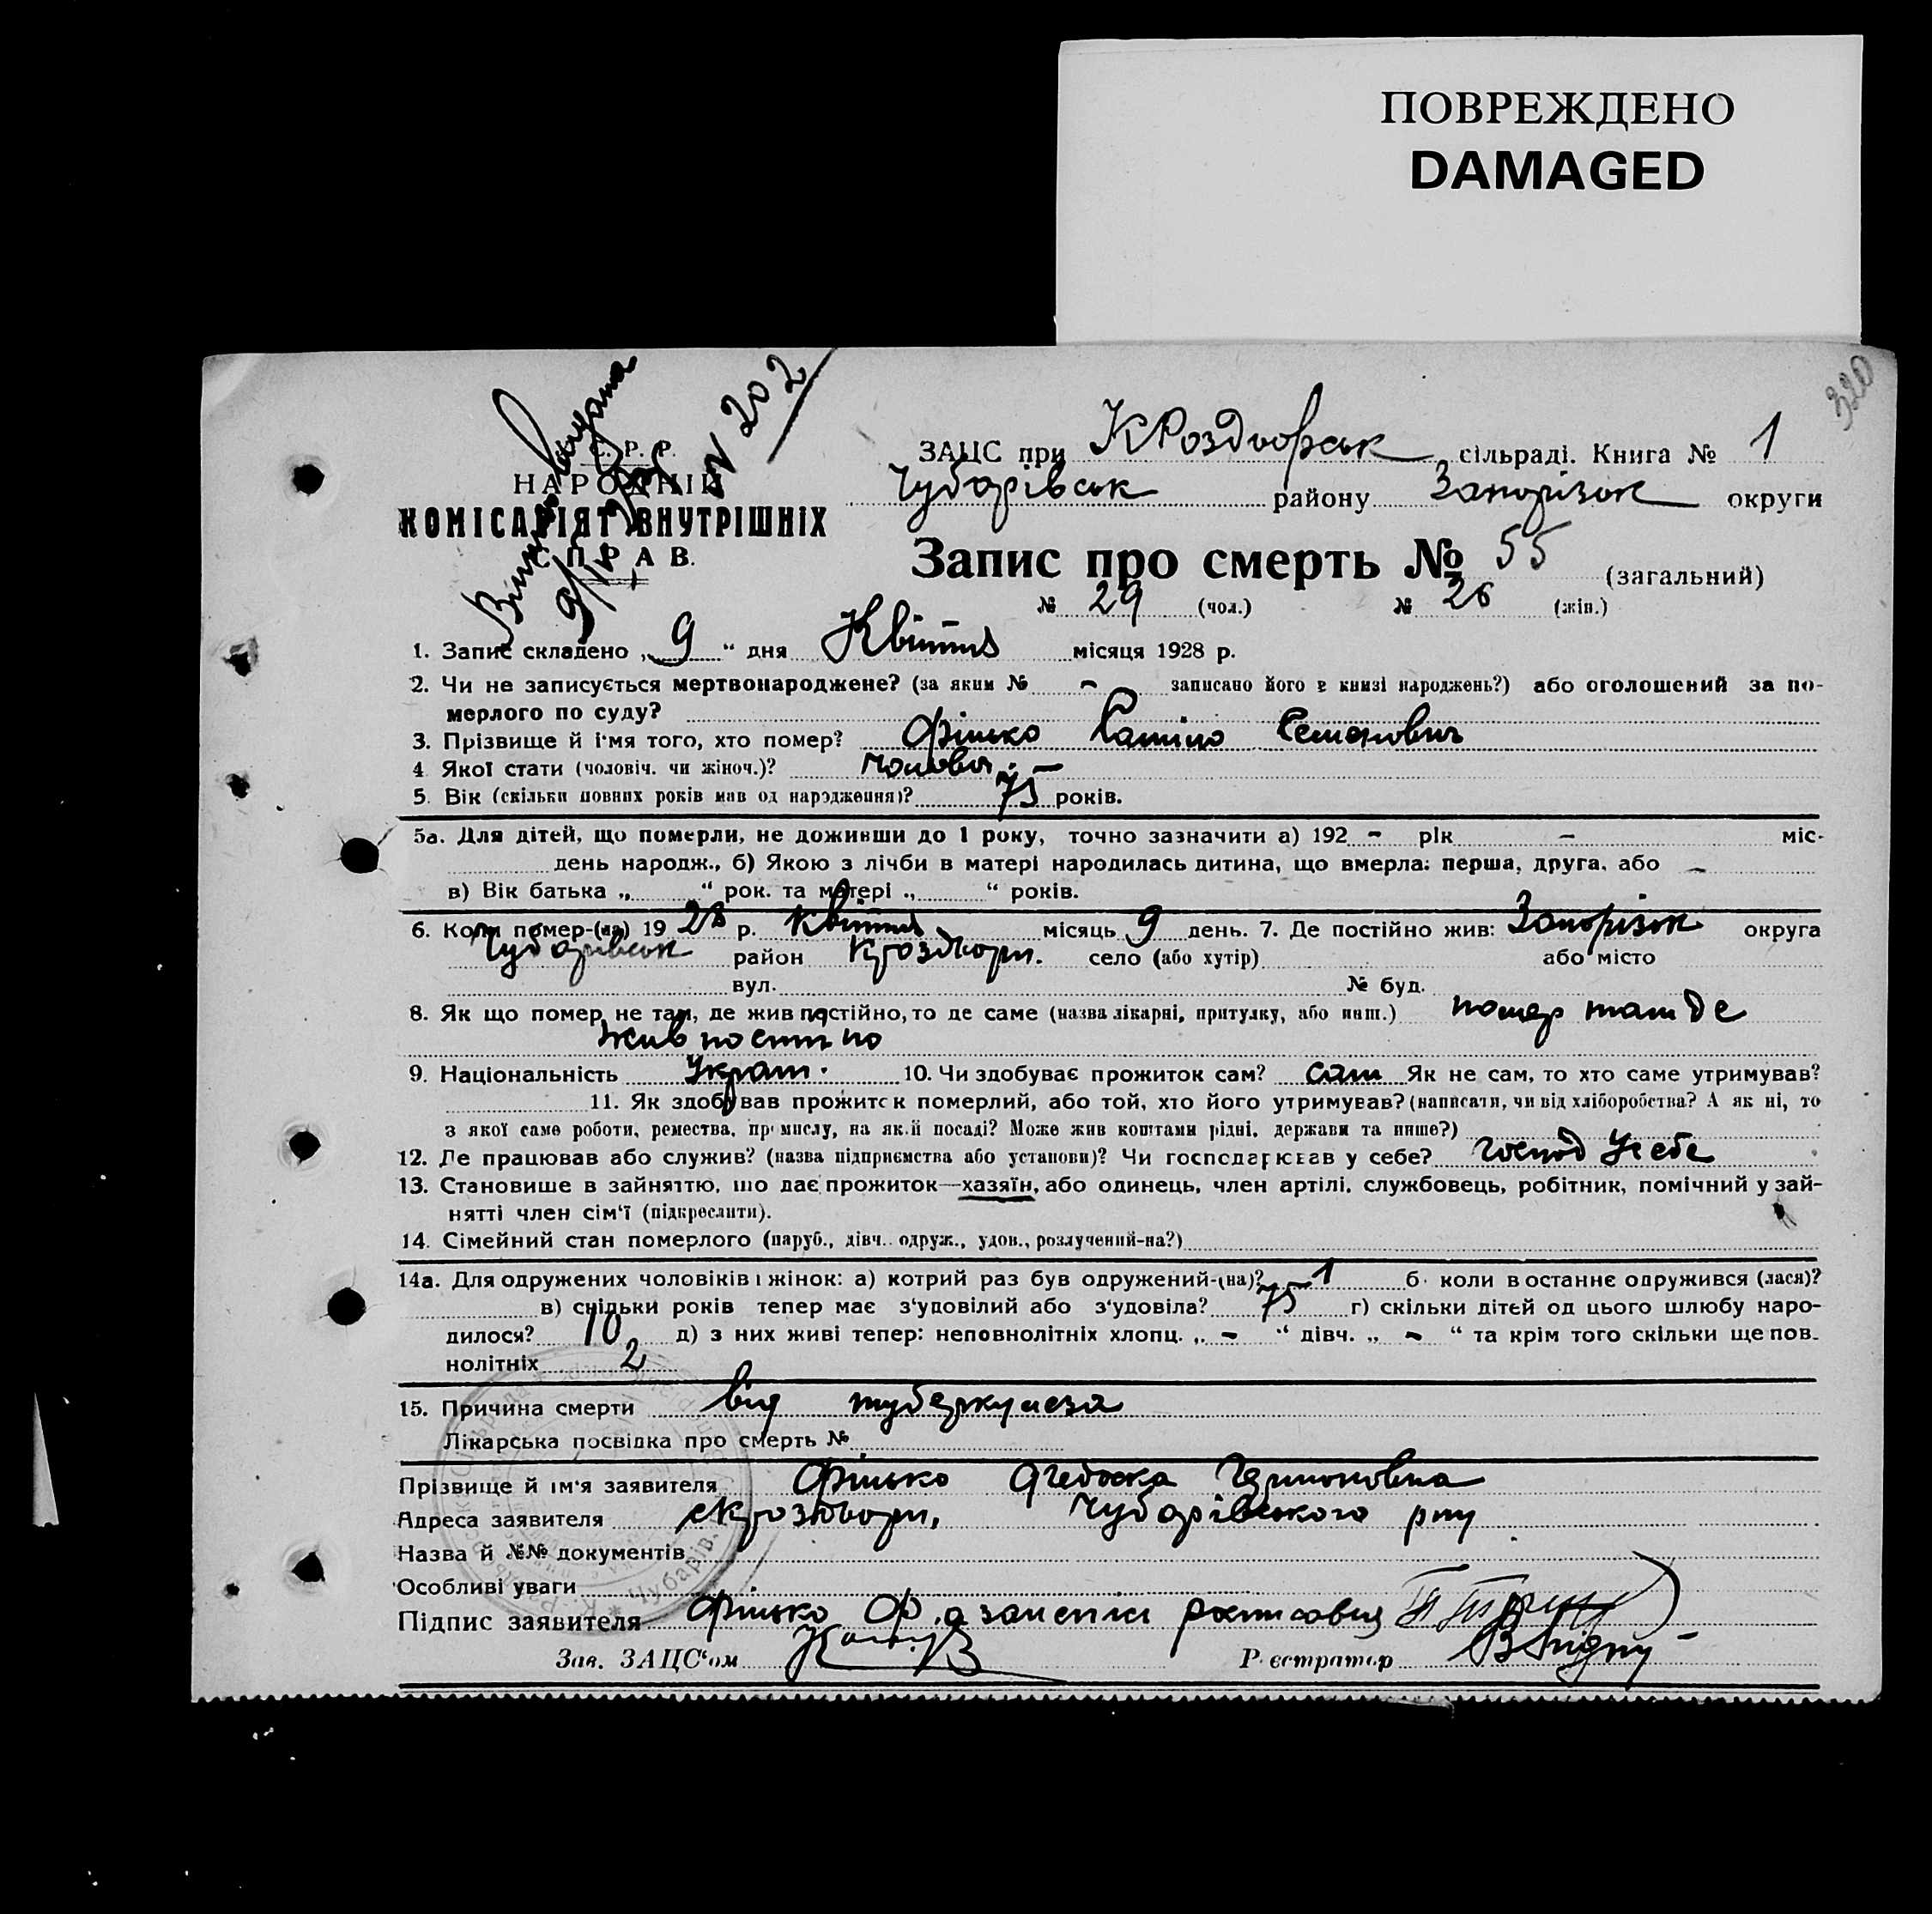 ПОВРЕЖДЕНО
DAMAGED
320
N 202
С. Р. Р.
НАРОДНІЙ
КОМІСАРІЯТ ВНУТРІШНІХ
СПРАВ.
ЗАЦС при КРоздорськ сільраді. Книга № 1
Чубарівськ району Запорізьк округи
Запис про смерть № 55 (загальний)
№ 29 (чол.) № 26 (жін.)
1. Запис складено „ 9 “ дня Квітня місяця 1928 р.
2. Чи не записується мертвонароджене? (за яким № - записано його в книзі народжень?) або оголошений за по-
мерлого по суду?
3. Прізвище й ім'я того, хто помер? Фінько Семенович
4 Якої стати (чоловіч. чи жіноч.)? чоловіч. —
5. Вік (скільки повних років мав од народження)? 75 років.
5а. Для дітей, що померли, не доживши до 1 року, точно зазначити а) 192 - рік - міс-
день народж., б) Якою з лічби в матері народилась дитина, що вмерла: перша, друга, або -
в) Вік батька „ “ рок. та матері „ “ років.
6. Коли помер-(ла) 19 28 р. Квітня місяць 9 день. 7. Де постійно жив: Запорізьк округа
Чубарівськ район село (або хутір) або місто
вул. № буд.
8. Як що помер не там, де жив постійно, то де саме (назва лікарні, притулку, або инш.) помер там де
жив постійно
9. Національність Украін. 10. Чи здобуває прожиток сам? сам Як не сам, то хто саме утримував?
11. Як здобував прожиток померлий, або той, хто його утримував? (написати, чи від хліборобства? А як ні, то
з якої саме роботи, ремества, промислу, на якій посаді? Може жив коштами рідні, держави та инше?)
12. Де працював або служив? (назва підприємства або установи)? Чи господарював у себе? господ у себе
13. Становище в зайняттю, що дає прожиток—хазяїн, або одинець, член артілі, службовець, робітник, помічний у зай-
нятті член сім'ї (підкреслити).
14. Сімейний стан померлого (паруб., дівч. одруж., удов., розлучений-на?)
14а. Для одружених чоловіків і жінок: а) котрий раз був одружений-(на)? 1 б. коли в останнє одружився (лася)?
в) скільки років тепер має з'удовілий або з'удовіла? 75 г) скільки дітей од цього шлюбу наро-
дилося? 10 д) з них живі тепер: неповнолітніх хлопц. „ - “ дівч. „ - “ та крім того скільки ще пов-
нолітніх 2
15. Причина смерти від туберкульоза
Лікарська посвідка про смерть №
Прізвище й ім'я заявителя Фінько
Адреса заявителя Чубарівського р-ну
Назва й №№ документів
Особливі уваги
Підпис заявителя Фінько Ф. а за неписм росписався
Зав. ЗАЦС'ом
Реєстратор